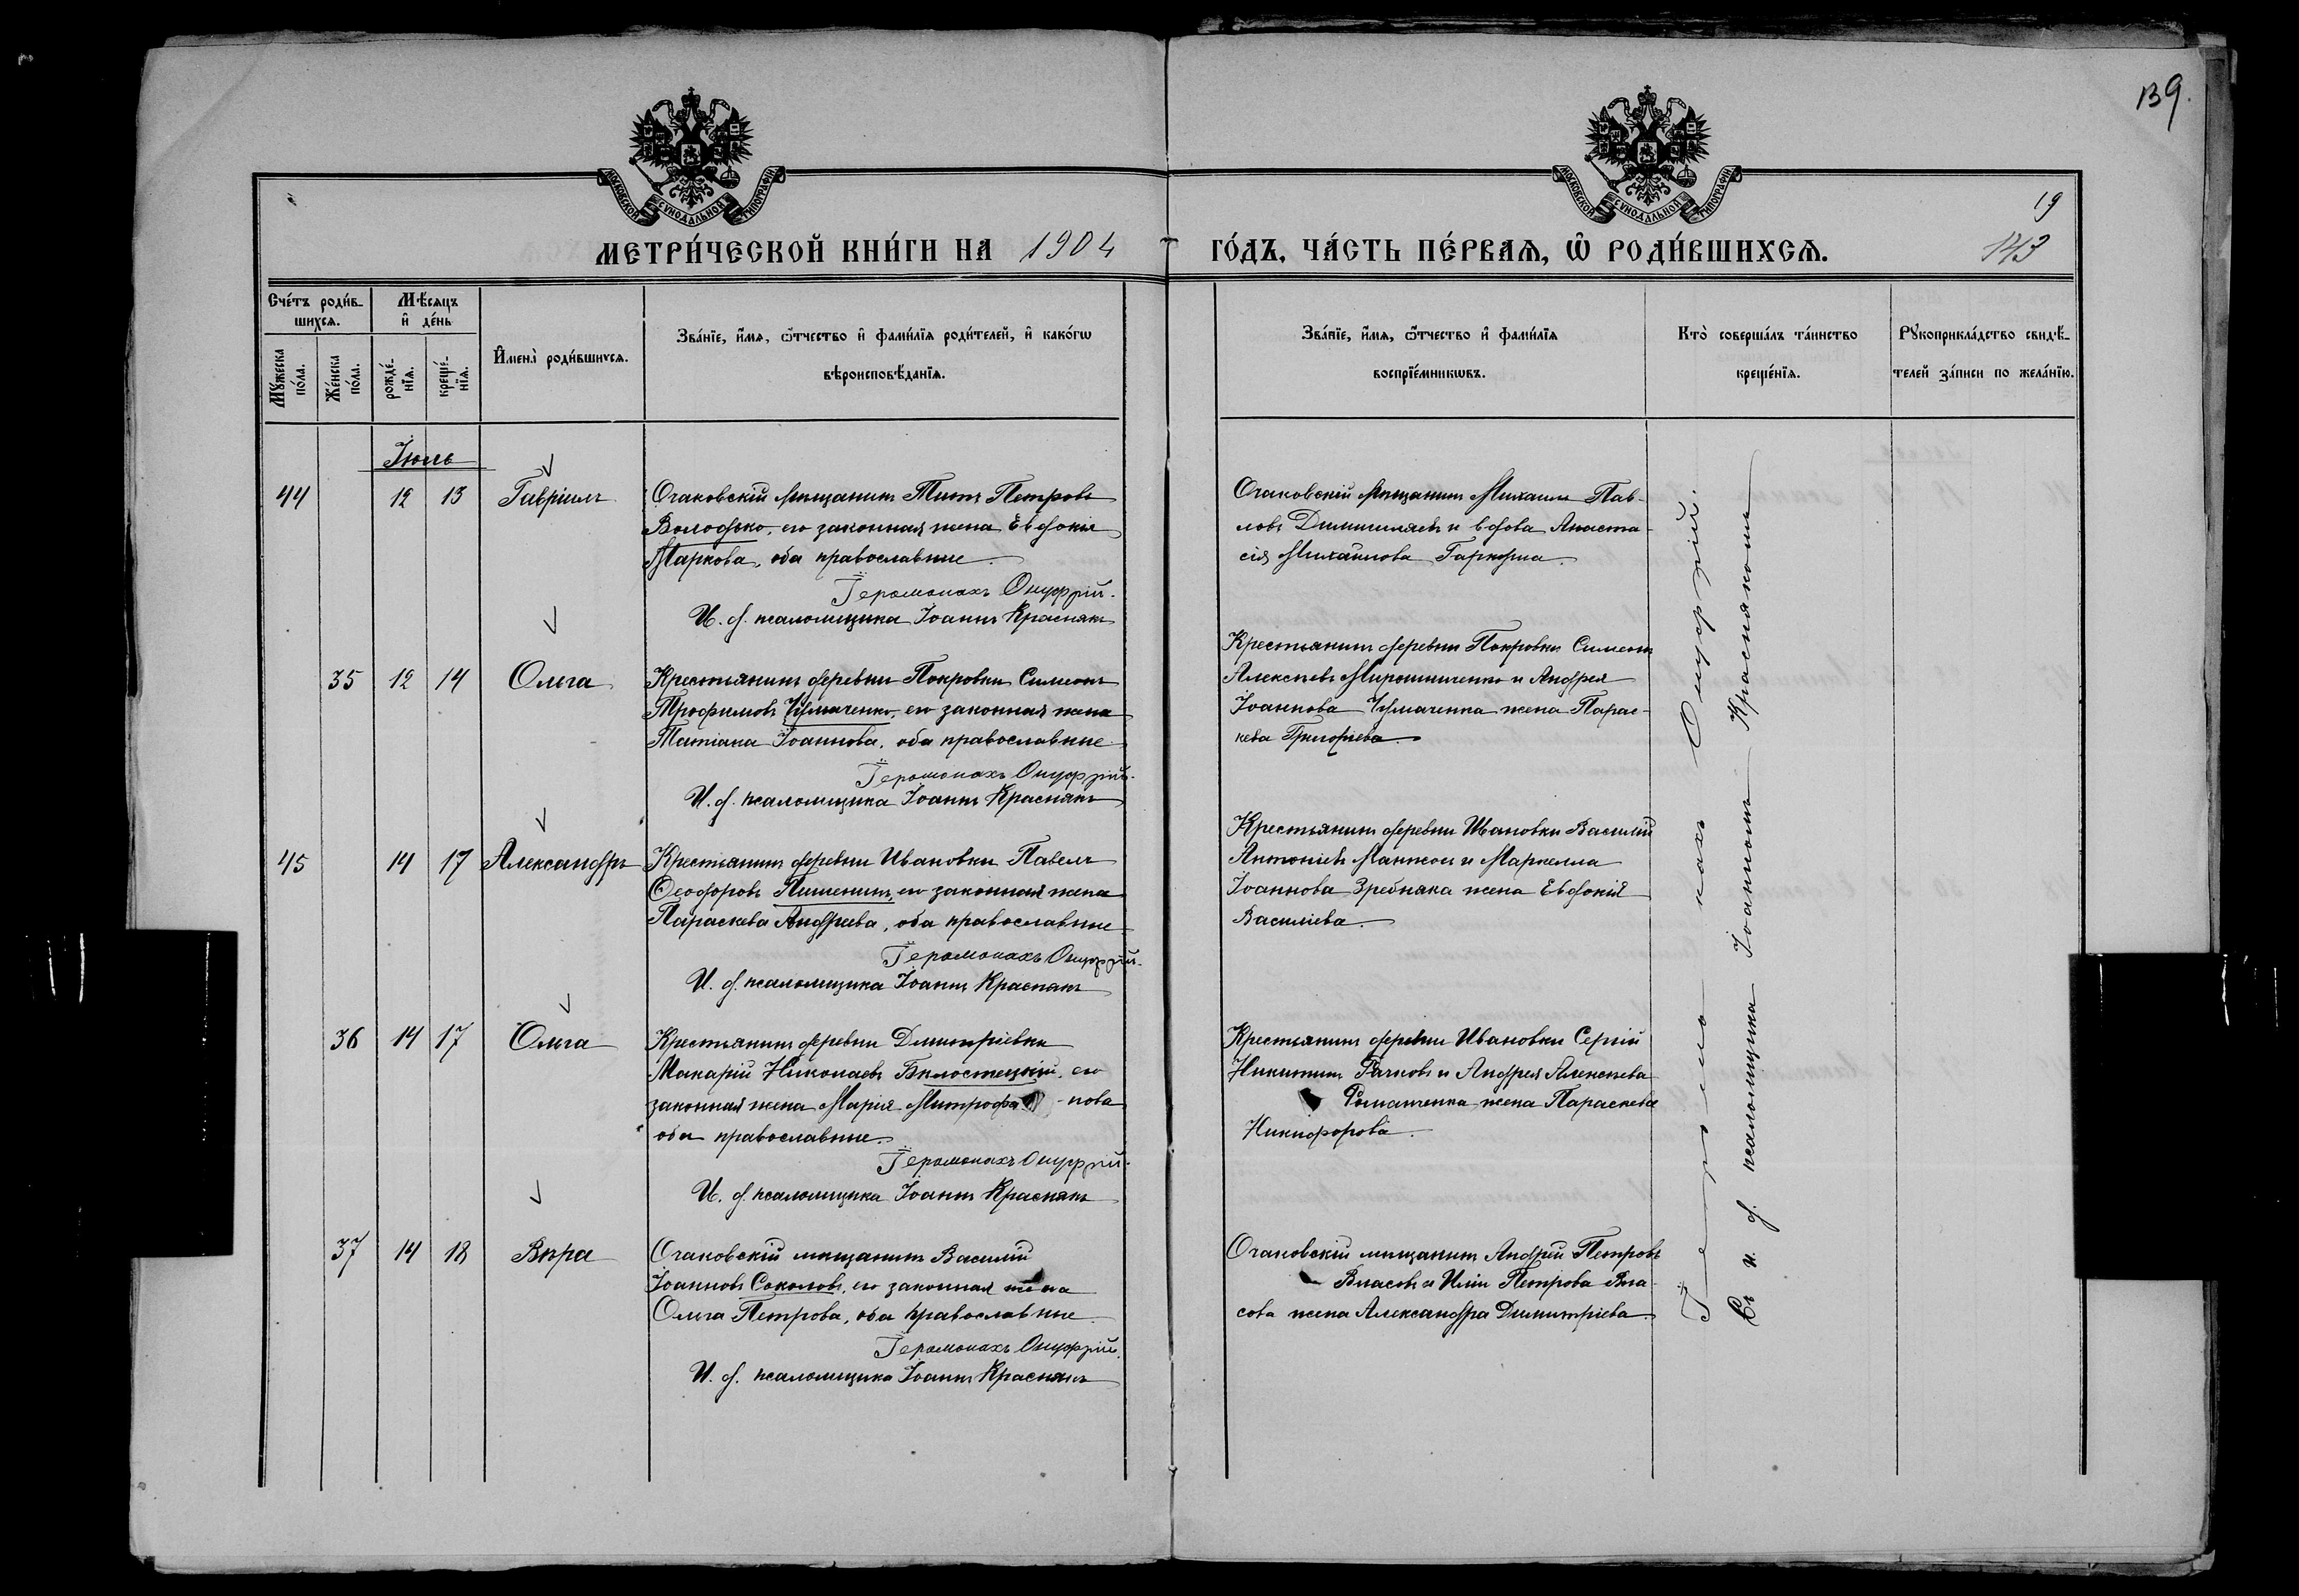 139.
МОСКОВСКОЙ СѴНОДАЛЬНОЙ ТИПОГРАФІИ
МОСКОВСКОЙ СѴНОДАЛЬНОЙ ТИПОГРАФІИ
19
МЕТРИ́ЧЕСКОЙ КНИ́ГИ НА 1904
ГО́ДЪ, ЧА́СТЬ ПЕ́РВАѦ, Ѡ҆ РОДИ́ВШИХСѦ.
143
Сче́тъ роди́в-
шихсѧ.
Мѣ́сяцъ
и҆ де́нь
Мꙋ́жеска
по́ла.
Же́нска
по́ла.
рожде́-
нїѧ.
креще́-
нїѧ.
И҆мена̀ роди́вшихсѧ.
Зва́нїе, и҆́мѧ, ѻ҆́тчество и҆ фами́лїѧ роди́телей, и҆ како́гѡ
вѣроисповѣ́данїѧ.
Зва́нїе, и҆́мѧ, ѻ҆́тчество и҆ фами́лїѧ
воспрїе́мникѡвъ.
Кто̀ соверша́лъ та́инство
креще́нїѧ.
Рꙋкоприкла́дство свидѣ́-
телей за́писи по жела́нїю.
Іюль
44 12 13 Гавріилъ
Очаковскій мѣщанинъ Титъ Петровъ
Володько, его законная жена Евдокія
Маркова, оба православные.
Іеромонахъ Онуфрій.
И. д. псаломщика Іоаннъ Краснякъ
Очаковскій мѣщанинъ Михаилъ Пав-
ловъ и вдова Анаста-
сія Михаилова
35 12 14 Ольга
Крестьянинъ деревни Покровки Симеонъ
Трофимовъ Чумаченко, его законная жена
Татіана Іоаннова, оба православные.
Іеромонахъ Онуфрій.
И. д. псаломщика Іоаннъ Краснякъ
Крестьянинъ деревни Покровки Симеонъ
Алексѣевъ Мирошниченко и Андрея
Іоаннова Чумаченка жена Парас-
кева Григоріева.
45 14 17 Александръ
Крестьянинъ деревни Ивановки Павелъ
Ѳеодоровъ Пименинъ, его законная жена
Параскева Андреева, оба православные
Іеромонахъ Онуфрій.
И. д. псаломщика Іоаннъ Краснякъ
Крестьянинъ деревни Ивановки Василій
Антоніевъ Манжос и Маркелла
Іоаннова Зребняка жена Евдокія
Василіева.
36 14 17 Ольга
Крестьянинъ деревни Димитріевки
Макарій Николаевъ Бѣлостецкій, его
законная жена Марія Митрофа-нова
оба православные.
Іеромонахъ Онуфрій.
И. д. псаломщика Іоаннъ Краснякъ
Крестьянинъ деревни Ивановки Сергій
Никитинъ и Андрея Алексѣева
Романченка жена Параскева
Никифорова.
37 14 18 Вѣра
Очаковскій мѣщанинъ Василій
Іоанновъ Соколовъ, его законная жена
Ольга Петрова, оба православные.
Іеромонахъ Онуфрій.
И. д. псаломщика Іоаннъ Краснякъ
Очаковскій мѣщанинъ Андрей Петровъ
Власовъ и Иліи Петрова Вла-
сова жена Александра Димитріева.
Іеромонахъ Онуфрій.
Съ и. д. псаломщика Іоанномъ Краснякомъ